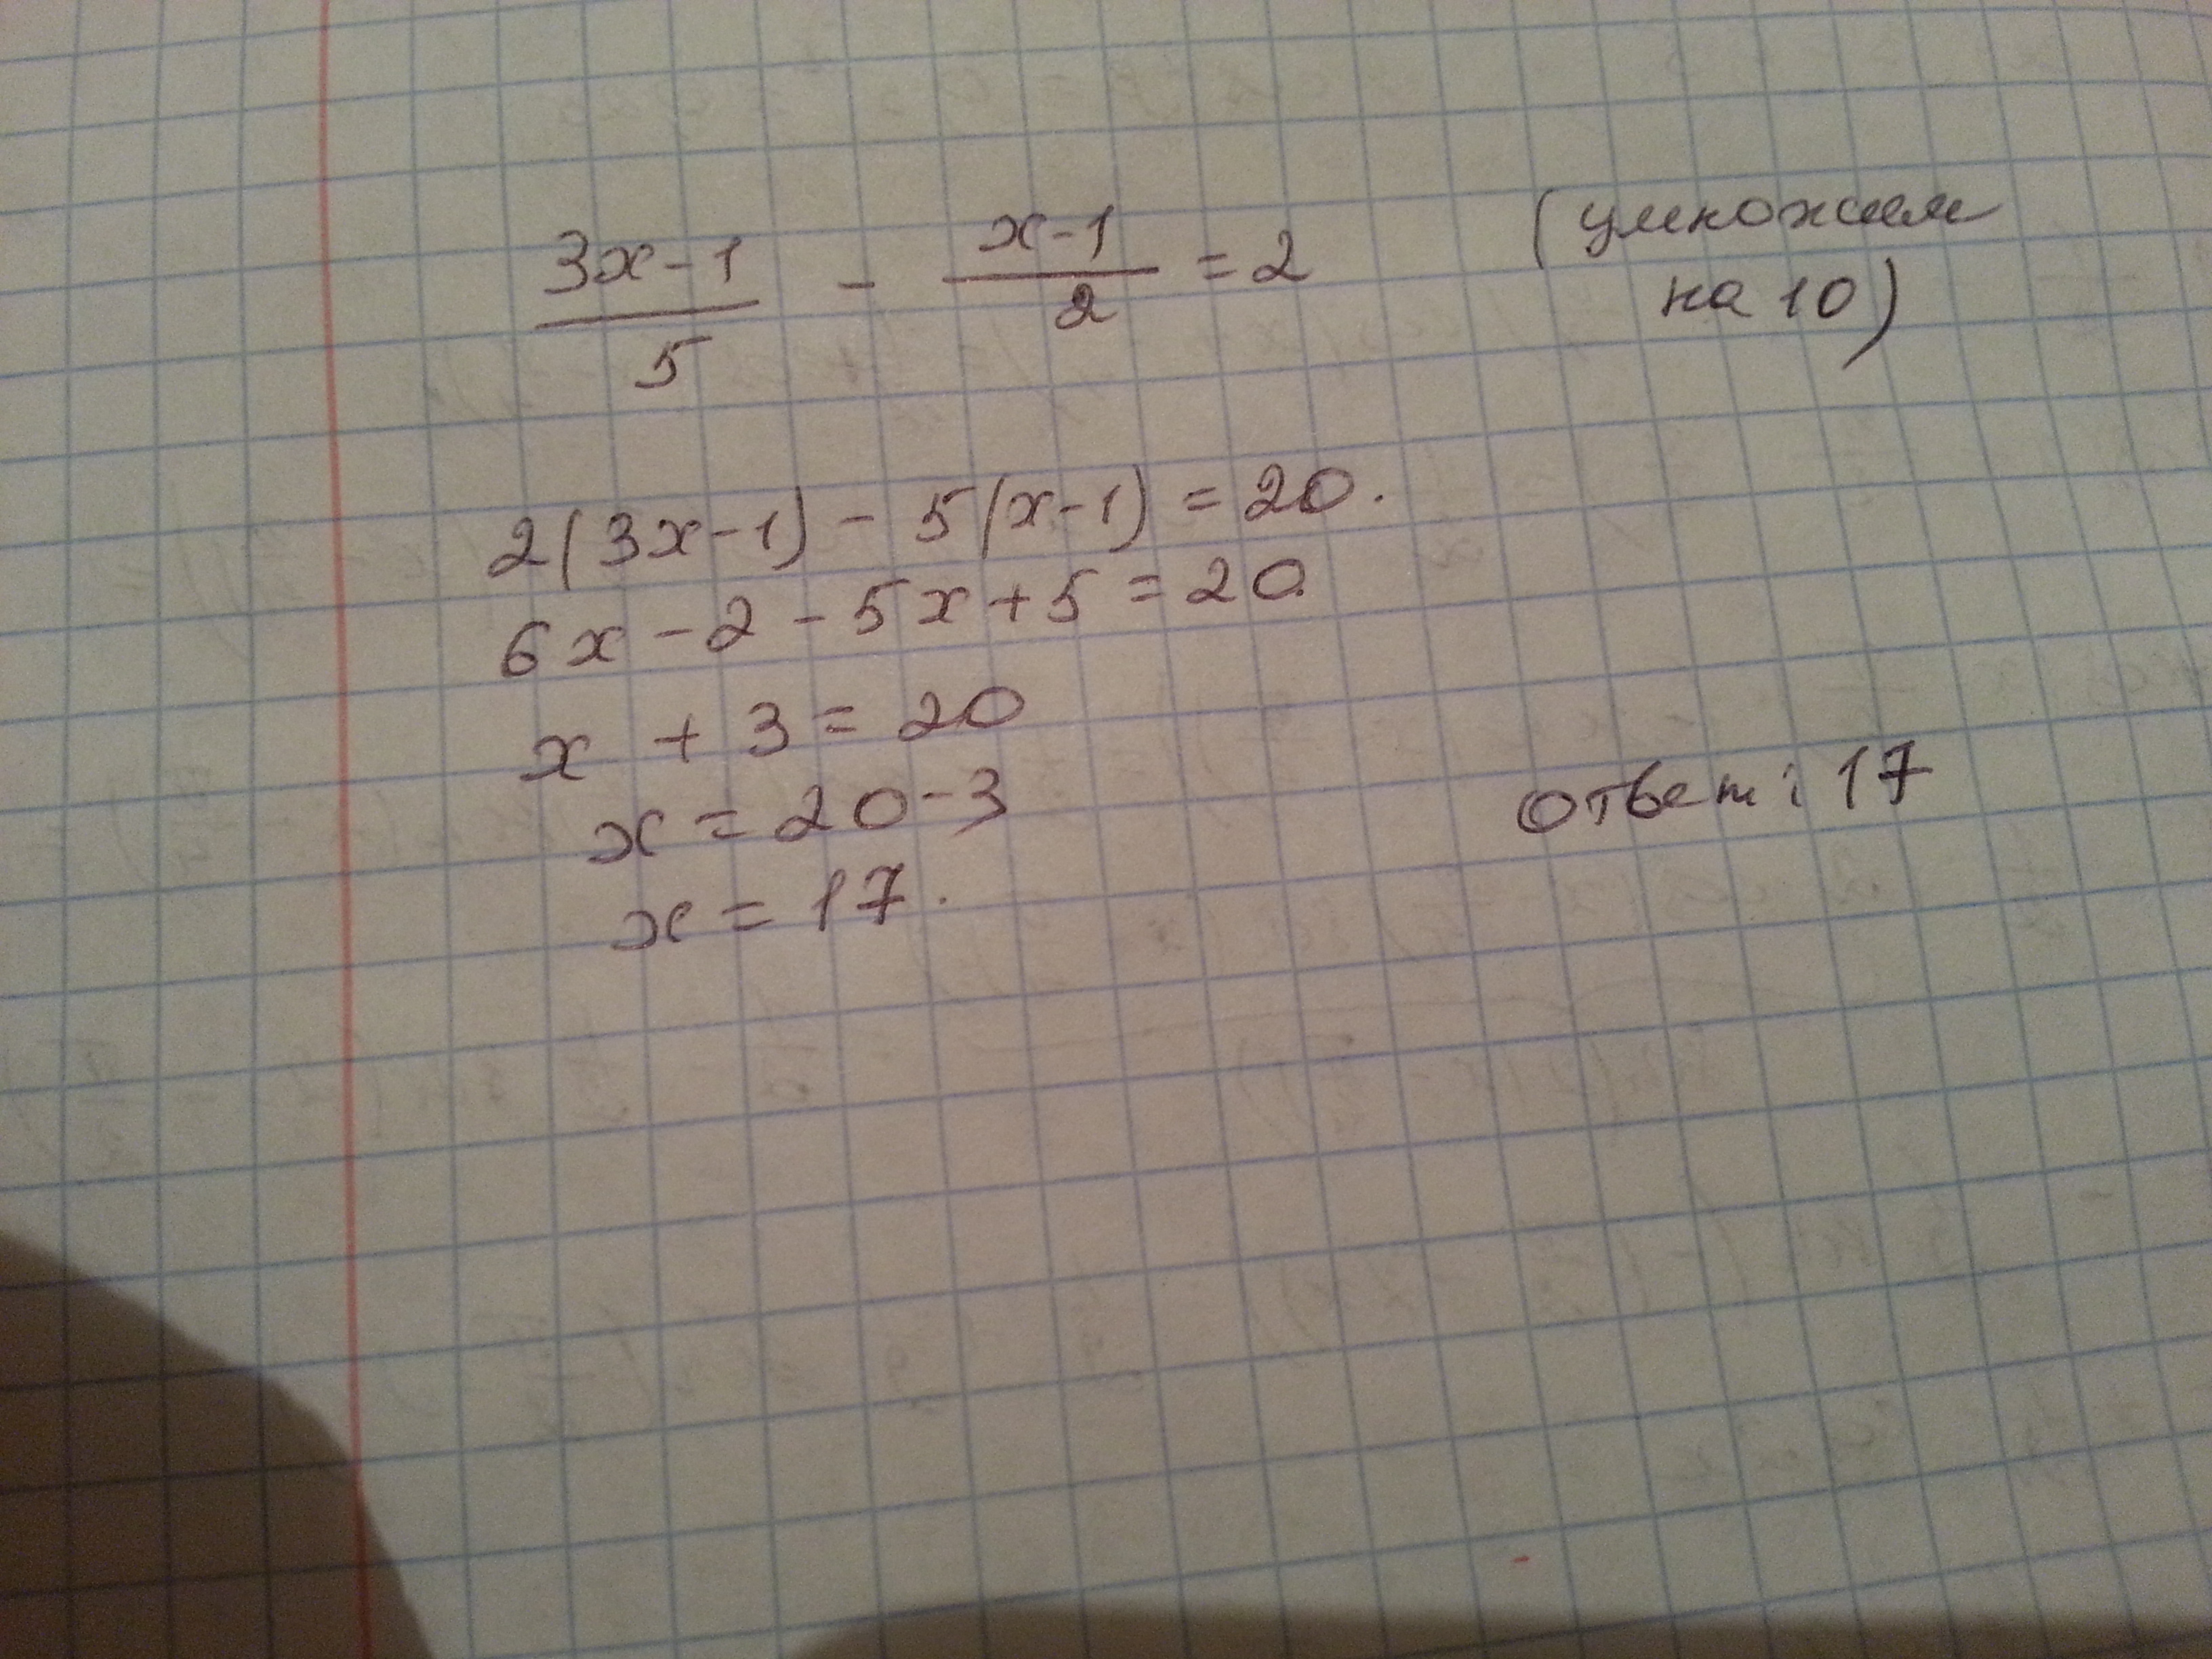 (3x-1)/5 - (x-1)/2 = 2 (умножим
на 10)
2(3x-1) - 5(x-1) = 20.
6x - 2 - 5x + 5 = 20.
x + 3 = 20
x = 20 - 3
ответ: 17
x = 17.